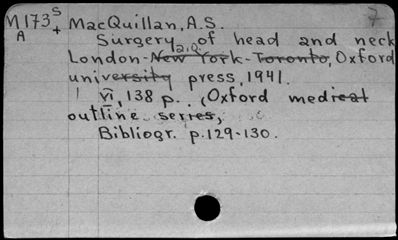 M173 S MacQuillan, A.S. 7
A + Surgery of head and neck
a.o.
London-New York-Toronto, Oxford
university press, 1941.
VI, 138 p. (Oxford medical
outline series,
Bibliogr. p.129-130.